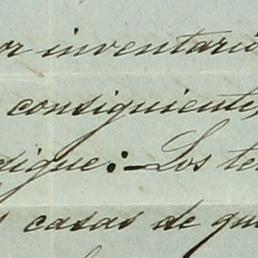 or inventario
consiguiente,
digue:—Los te
casas de qu